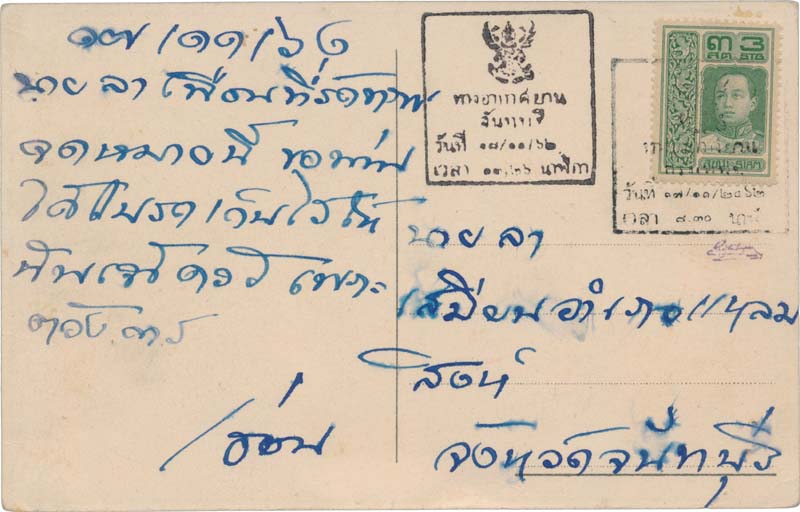 ๑๗/๑๑/๖๒
นาย ลา เพื่อนที่รักทราบ
จดหมายนี้ ขอท่าน
ได้โปรดเก็บไว้ให้
ฉันเซ่คอวี เพราะ
ต้องการ
ฮ่อน
ทางอากาศยาน
จันทบุรี
วันที่ ๑๘/๑๑/๖๒
เวลา ๑๓,๒๖ นาฬิกา
๓ 3
วันที่ ๑๗/๑๑/๒๔๖๒
เวลา ๘.๓๐
นาย ลา
เสมียนอำเภอแหลม
สิงห์
จังหวัดจันทบุรี